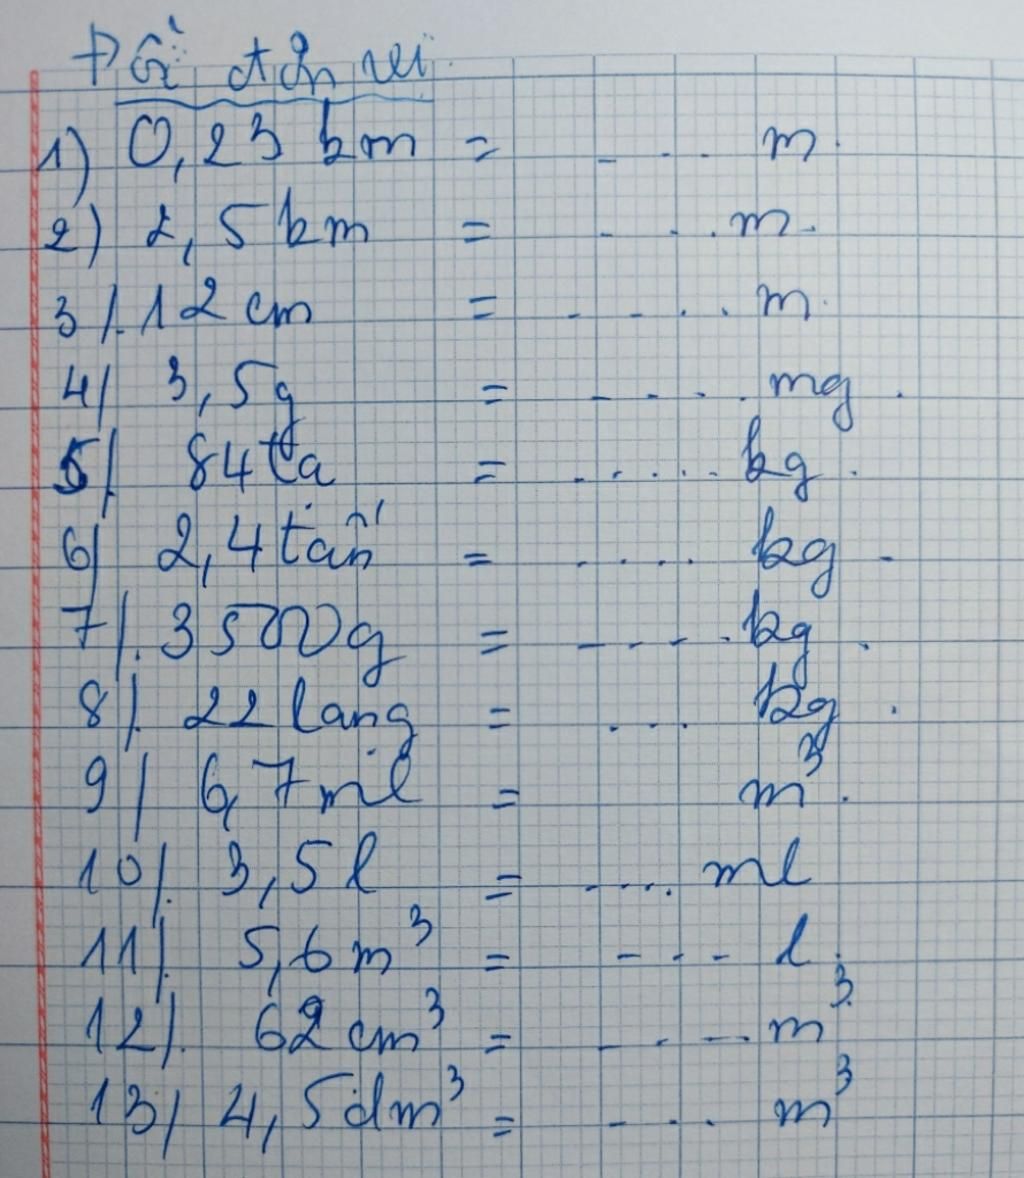 Đổi đơn vị.
1) 0,23 km = .... m.
2) 2,5 km = .... m.
3/. 12 cm = ..... m.
4/ 3,5g = ..... mg.
5/. 84 tạ = ..... kg.
6/ 2,4 tấn = .... kg.
7/. 3500g = ..... kg.
8/. 22 lạng = .... kg.
9/ 6,7 ml = m³.
10/. 3,5 l = .... ml
11/. 5,6 m³ = .... l.
12/. 62 cm³ = .... m³.
13/ 4,5 dm³ = .... m³